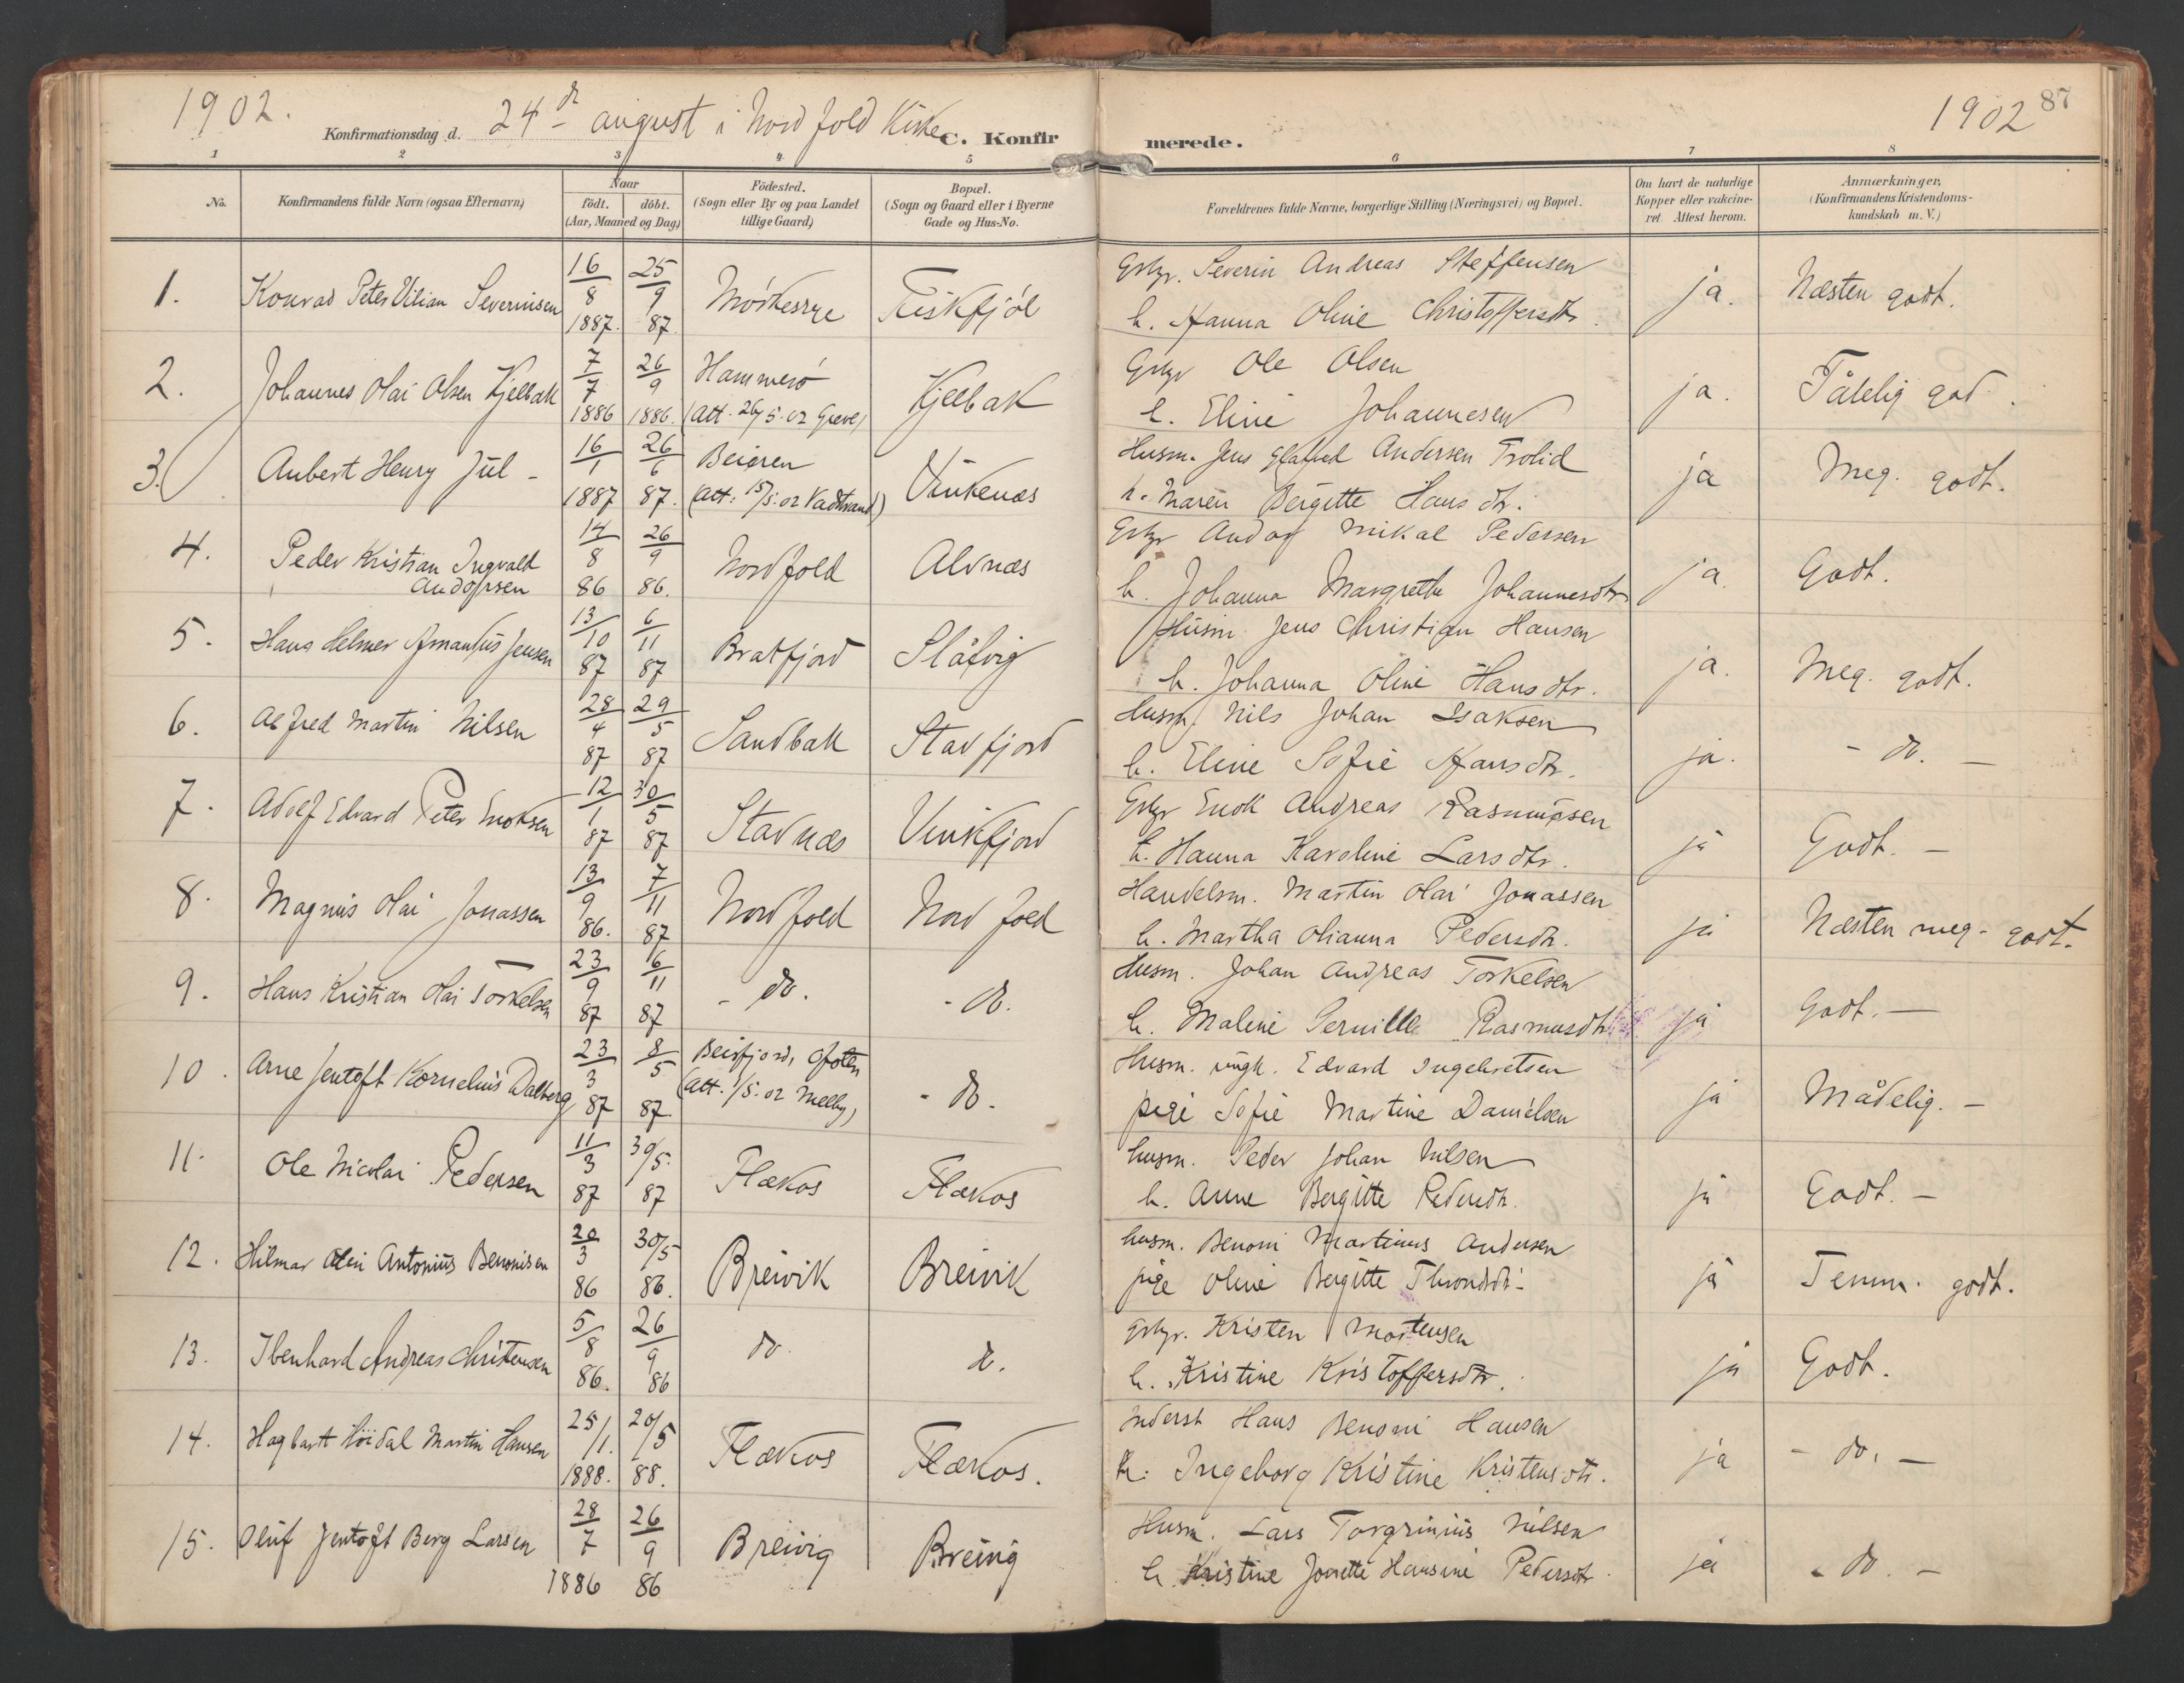 1902.
Konfirmationsdag d. 24de august i Nordfold Kirke
C. Konfirmerede.
1902
87
1 2 3 4 5 6 7 8
No.
Konfirmandens fulde Navn (ogsaa Efternavn)
Naar
födt. döbt.
(Aar, Maaned og Dag)
Födested.
(Sogn eller By og paa Landet
tillige Gaard)
Bopæl.
(Sogn og Gaard eller i Byerne
Gade og Hus-No.
Forældrenes fulde Navne, borgerlige Stilling (Næringsvei) og Bopæl.
Om havt de naturlige
Kopper eller vakcine-
ret. Attest herom.
Anmærkninger,
(Konfirmandens Kristendoms-
kundskab m. V.)
1. Konrad Peter Vilian Severinsen 16/8 1887. 25/9 87. Mörkesve
Gbr. Severin Andreas Steffensen
h. Hanna Oline Christoffersdtr.
ja. Næsten godt.
2. Johannes Olai Olsen Kjelbak 7/7 1886 26/9 1886. Hammerö
(Att. 26/5.02 Greve) Kjelbak
Gbr Ole Olsen
h. Eline Johannesen
ja. Tålelig god.
3. Aubert Henry Jul - 16/1 1887 26/6 87. Beiaren
(Att: 15/5.02 Vadstrand) Vinkenæs
Husm. Jens Andersen Trolid
h. Maren Bergitte Hansdtr.
ja Meg. godt.
4. Peder Kristian Ingvald
Andorsen 14/8 86 26/9 86. Nordfold Alvnæs
Gbr Andor Mikal Pedersen
h. Johanna Margrethe Johannesdtr
ja. Godt.
5. Hans Helmer Amandus Jensen 13/10 87 6/11 87 Bratfjord Slåtvig
Husm. Jens Christian Hansen
h. Johanna Oline Hansdtr.
ja. Meg. godt.
6. Alfred Martin Nilsen 28/4 87 29/5 87 Sandbak Stavfjord
Husm. Nils Johan Isaksen
h. Eline Sofie Hansdtr.
ja. - do. -
7. Adolf Edvard Peter Enoksen 12/1 87 30/5 87 Stavnæs Vinkfjord
Gbr Enok Andreas Rasmussen
h. Hanna Karoline Larsdtr.
ja Godt. -
8. Magnus Olai Jonassen 13/9 86. 7/11 87 Nordfold Nordfold
Handelsm. Martin Olai Jonassen
h. Martha Olianna Pedersdtr.
ja Næsten meg. godt.
9. Hans Kristian Olai Torkelsen 23/9 87 6/11 87 - do. - do.
Husm. Johan Andreas Torkelsen
h. Maline Pernille Rasmusdtr
ja Godt. -
10. Arne Jentoft Kornelius Dalberg 23/3 87 8/5 87. Beisfjord, Ofoten
(Att. 1/5.02 Melby) - do.
Husm. ungk. Edvard Ingebretsen
pige Sofie Martine Danielsen
ja Mådelig. -
11. Ole Nicolai Pedersen 11/3 87 30/5. 87 Flækos Flækos
husm. Peder Johan Nilsen
h. Anne Bergitte Pedersdtr.
ja Godt. -
12. Hilmar Olai Antonius Benonisen 20/3 86 30/5 86. Breivik Breivik
husm. Benoni Martinus Andersen
pige Oline Bergitte Throndsdtr.
ja Temm. godt.
13. Ibenhard Andreas Christensen 5/8 86. 26/9 86 do. do.
Gbr. Kristen Mortensen
h. Kristine Kristoffersdtr.
ja Godt.
14. Hagbart Höidal Martin Hansen 25/1. 1888. 20/5 88. Flækos Flækos.
Inderst Hans Benoni Hansen
h. Ingeborg Kristine Kristensdtr.
ja - do. -
15. Oluf Jentoft Berg Larsen 28/7 1886 26/9 86 Breivig Breivig
Husm. Lars Torgrinius Nilsen
h Kristine Jonette Hansine Pedersdtr.
ja - do. -